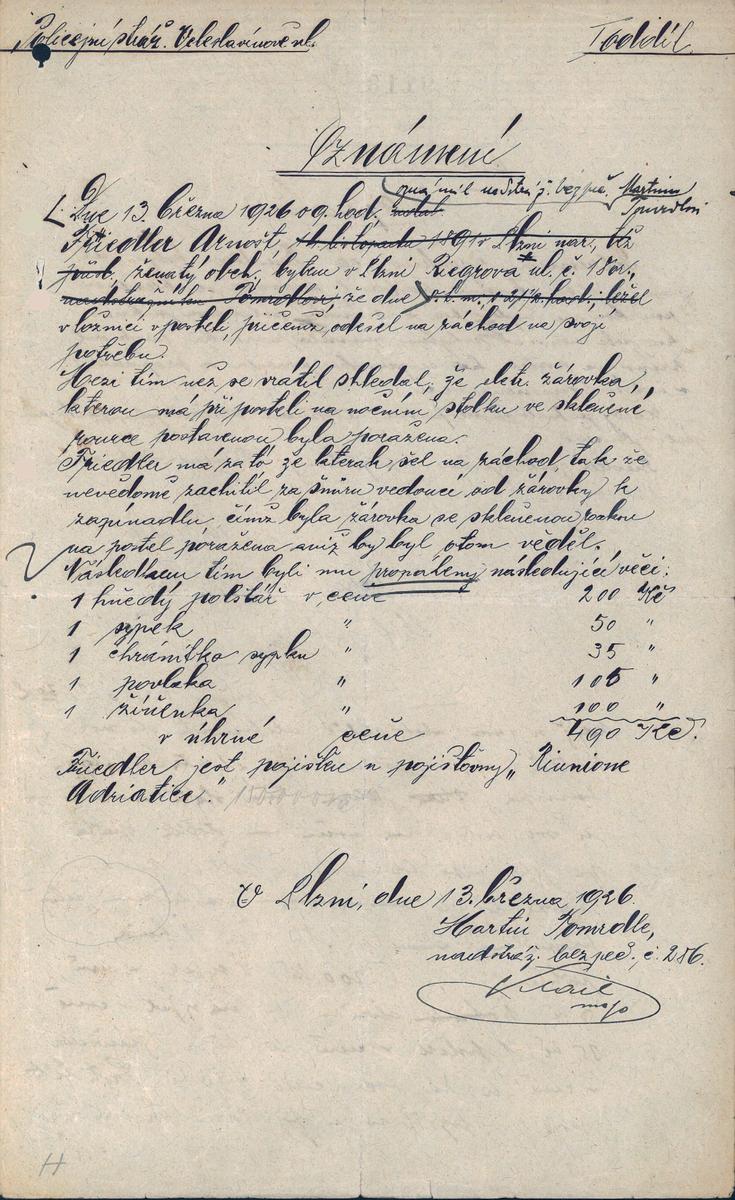 Policejní stráž. Veleslavínova ul. I oddíl.
Oznámení
oznámil nadstráž. bezpeč. Martinu
Dne 13. března 1926 o 9. hod.
Friedler Arnošt, 14. listopadu 1891 v Plzni nar., též
přísl., ženatý, obch. bytem v Plzni Riegrova ul. č. 18 or.,
že dne 8. t. m. o 21½ hod. ležel
v ložnici v posteli, přičemž odešel na záchod na svoji
potřebu.
Mezi tím než se vrátil shledal, že eletr. žárovka,
kterou má při posteli na nočním stolku ve skleněné
rource postavenou byla poražena.
Friedler má za to že kterak šel na záchod, tak že
nevědomě zachitil za šnůru vedoucí od žárovky k
zapínadlu, čímž byla žárovka se skleněnou rourkou
na postel poražena aniž by byl o tom veděl.
Následkem tím byli mu propáleny následující věci:
1 hnědý polštář v ceně 200 Kč
1 sypek " 50 "
1 chránítko sypku " 35 "
1 povlaka " 105 "
1 žíněnka " 100 "
v úhrné ceně 490 Kč.
Friedler jest pojištěn u pojišťovny „Riunione
Adriatice."
V Plzni, dne 13. března 1926.
Martin Pomrdle,
nadstráž. bezpeč. č. 286.